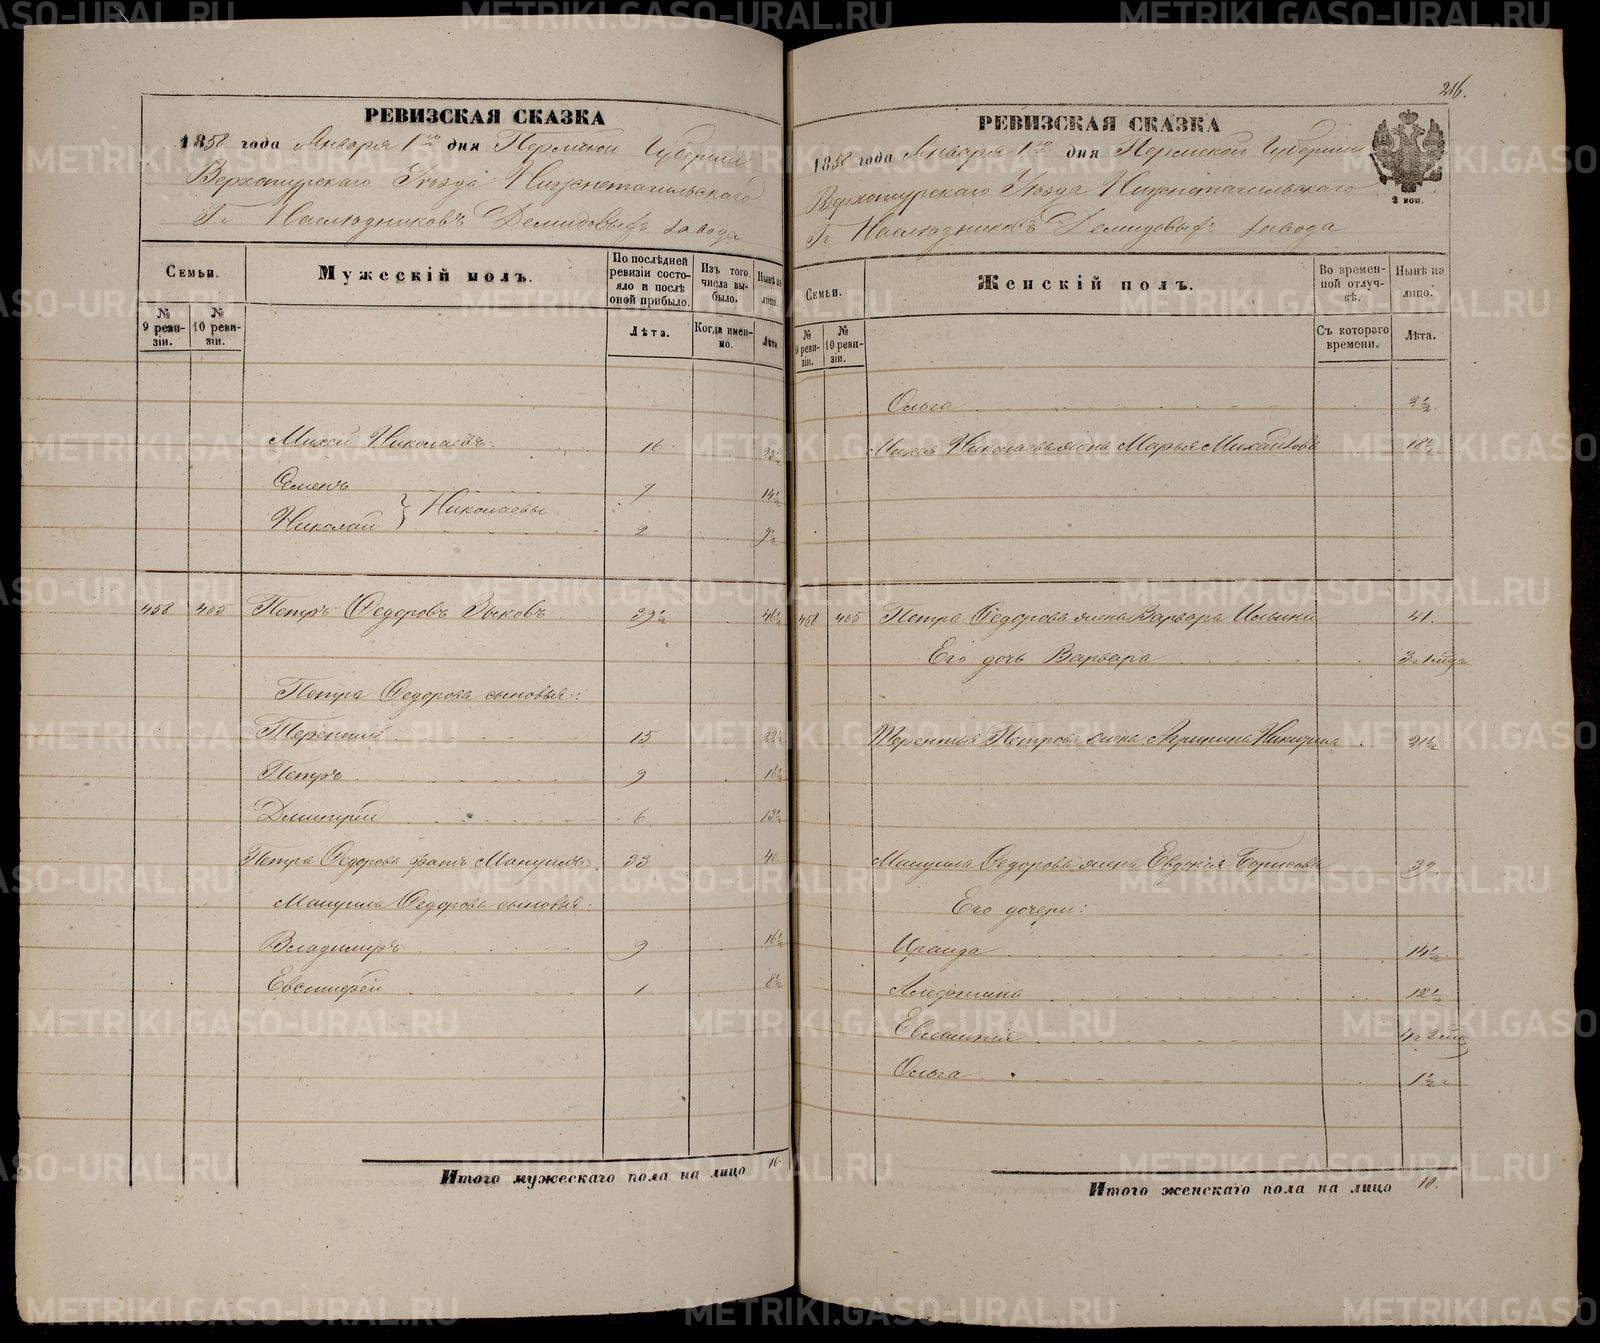 РЕВИЗСКАЯ СКАЗКА
1858 года Января 1го дня Пермской Губернии
Верхотурскаго Уезда Нижнетагильскаго
Гг. Наследниковъ Демидовыхъ завода
Семьи.
Мужескій полъ.
По послѣдней ревизіи состояло и послѣ оной прибыло.
Изъ того числа выбыло.
Нынѣ на лицо.
№ 9 ревизіи.
№ 10 ревизіи.
Лѣта.
Когда именно.
Лѣта.
Михей Николаевъ 16 23½
Семенъ 7 14½
Николаевы
Николай 2 9½
458 405 Петръ Федоровъ Зыковъ 39½ 46½
Петра Федорова сыновья:
Терентій 15 22½
Петръ 9 16½
Дмитрей 6 13½
Петра Федорова братъ Мануилъ 33 40
Мануила Федорова сыновья:
Владимиръ 9 16½
Евстифей 1 8½
Итого мужескаго пола на лицо 10.
216.
РЕВИЗСКАЯ СКАЗКА
1858 года Января 1го дня Пермской Губерніи
Верхотурскаго Уезда Нижнетагильскаго
Гг. Наследниковъ Демидовыхъ завода
2 коп.
Семьи.
Женскій полъ.
Во временной отлучкѣ.
Нынѣ на лицо.
№ 9 ревизіи.
№ 10 ревизіи.
Съ котораго времени.
Лѣта.
Ольга
Михея Николаева жена Марья Михайлова 18½
458 405 Петра Федорова жена Варвара Ильина 41.
Его дочь Варвара
Терентья Петрова жена Агрипина Никитина 21½
Мануила Федорова жена Евдокія Борисова 39
Его дочери:
Ираида 14½
Алефтина 12½
Евлампія
Ольга 1½
Итого женскаго пола на лицо 10.
METRIKI.GASO-URAL.RU